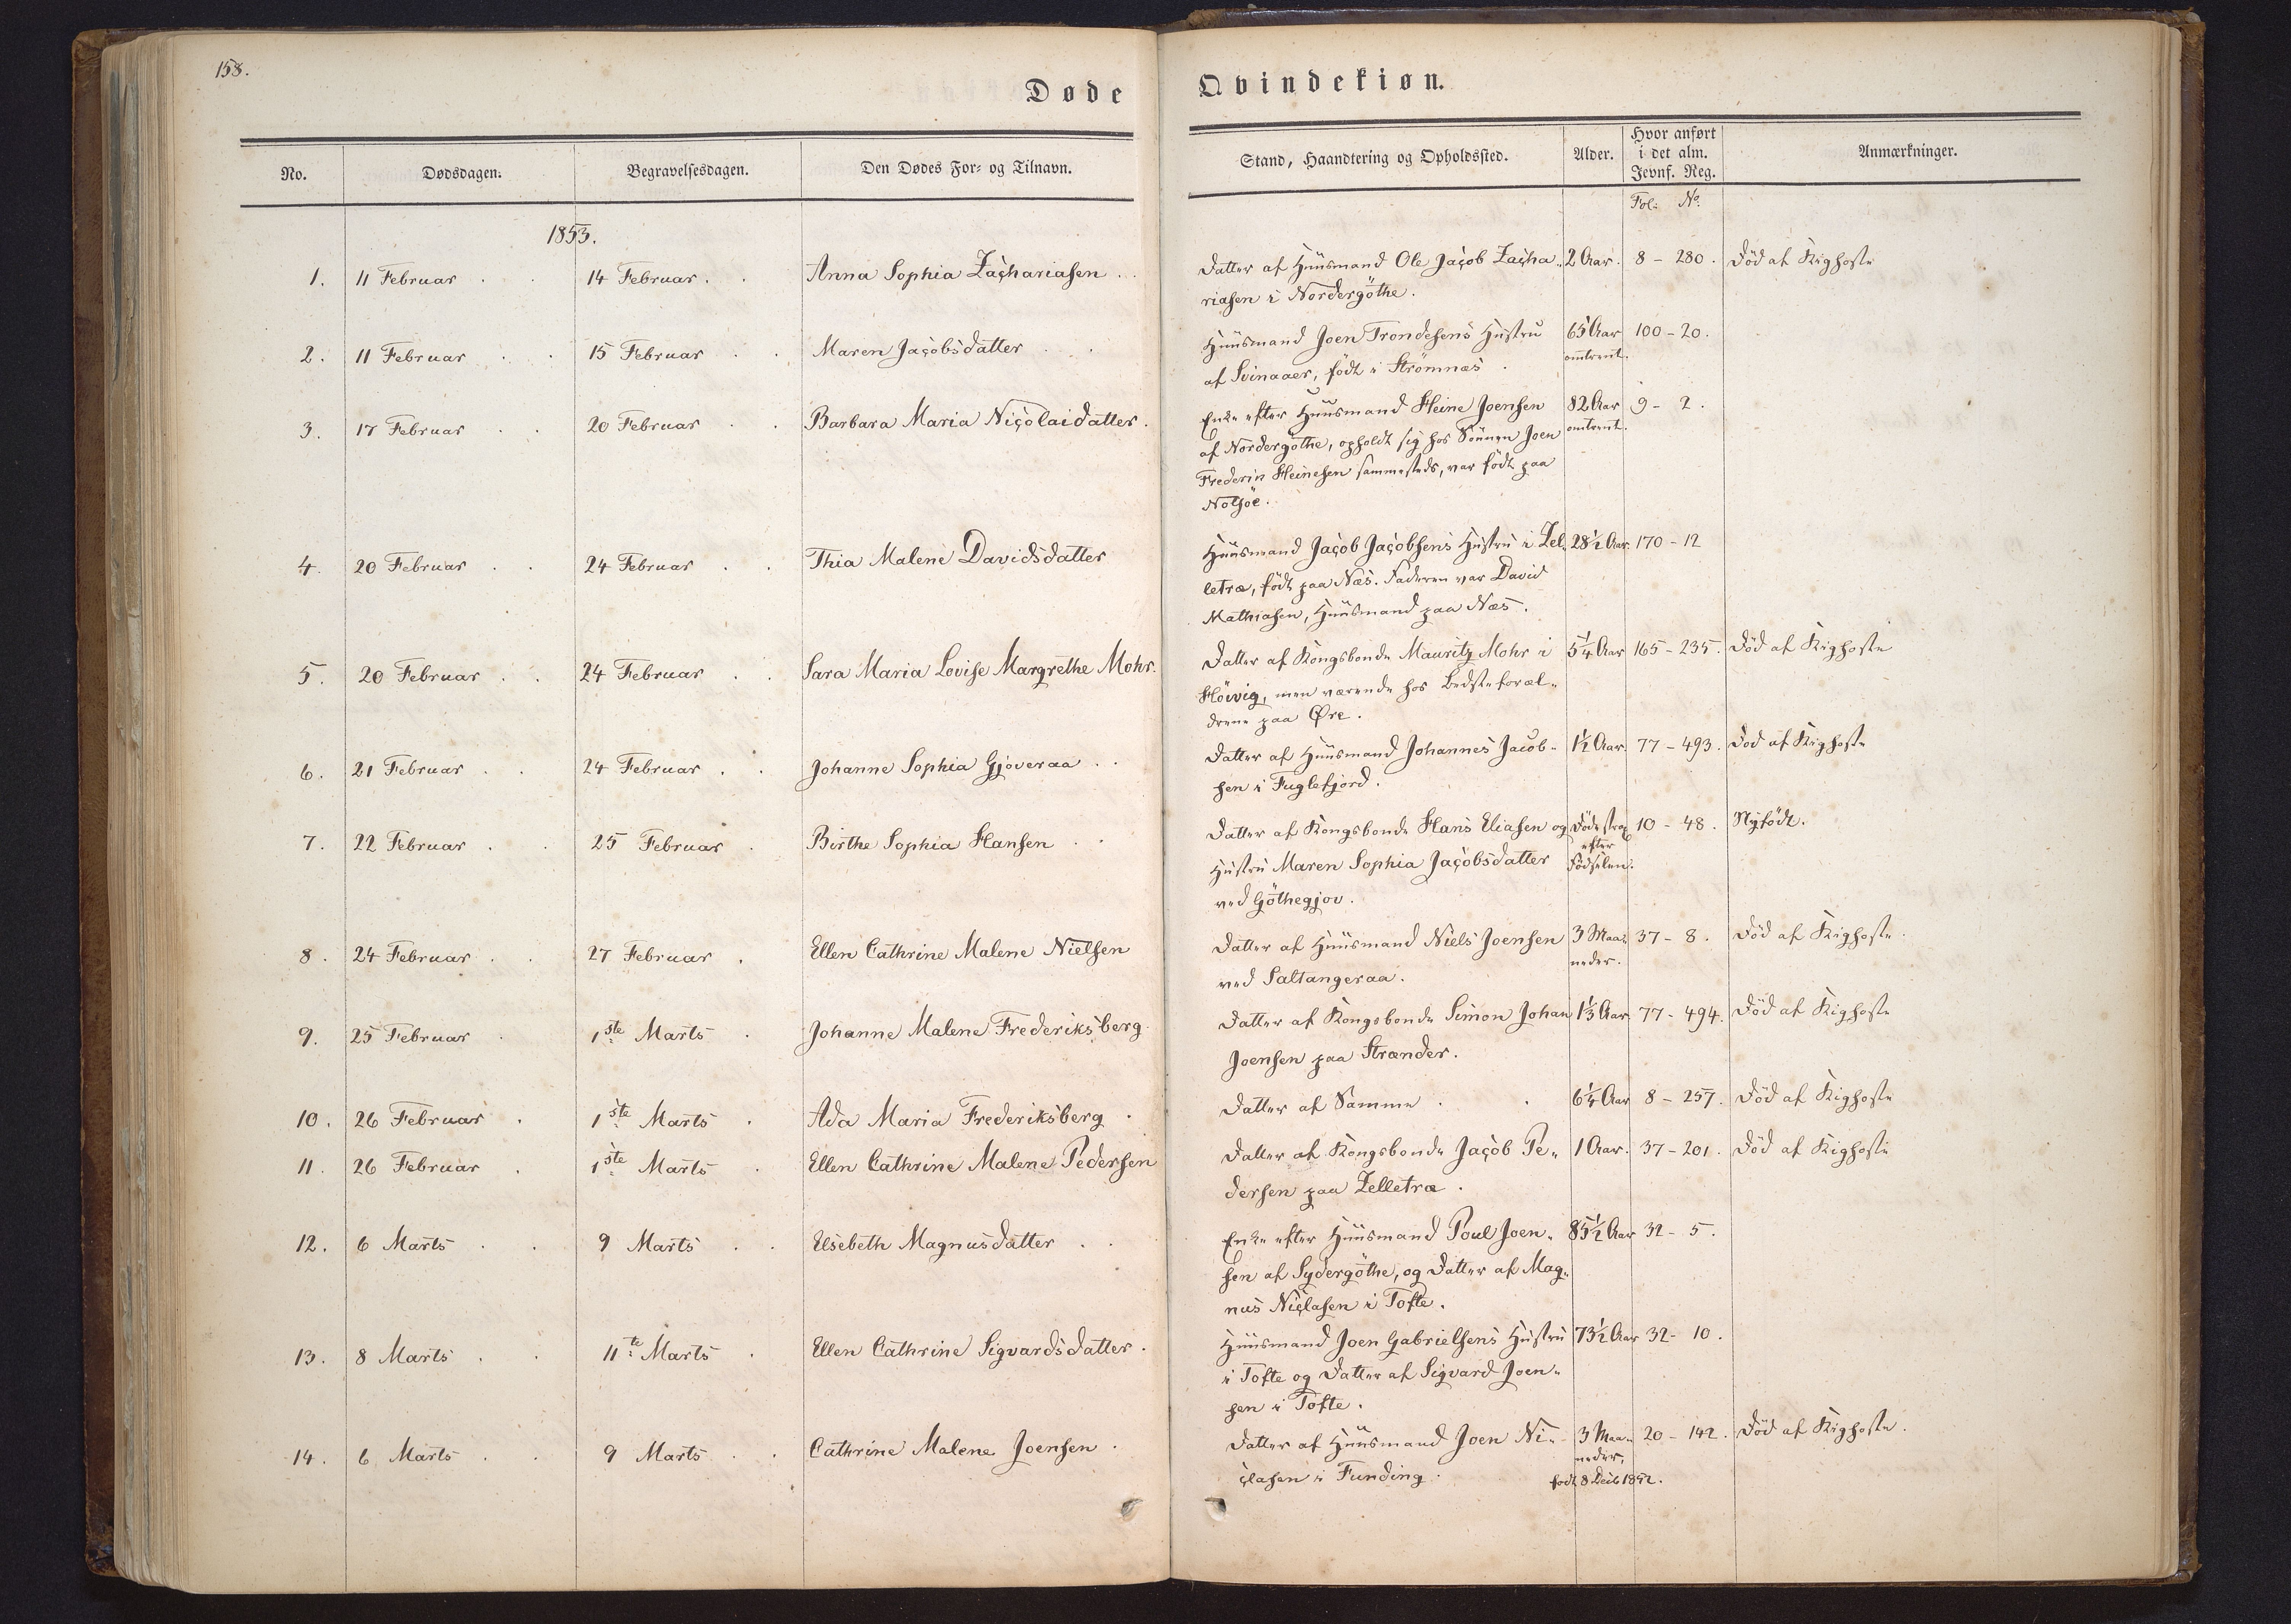 158.
Døde Qvindekiøn.
No. Dødsdagen. Begravelsesdagen. Den Dødes For- og Tilnavn. Stand, Haandtering og Opholdssted. Alder. Hvor anført i det alm. Jevnf. Reg. Anmærkninger.
Fol: No.
1853.
1. 11 Februar . . 14 Februar . . Anna Sophia Zachariasen . . Datter af Huusmand Ole Jacob Zacha- 2 Aar. 8 - 280. Död af Kighoste
riasen i Nordergöthe.
2. 11 Februar . . 15 Februar . . Maren Jacobsdatter . . Huusmand Joen Trondesens Hustru 65 Aar 100 - 20.
af Svinaaer, födt i Strömnæs . omtrent.
3. 17 Februar . . 20 Februar . . Barbara Maria Nicolaidatter . Enke efter Huusmand Heine Joensen 82 Aar 9 - 2.
af Nordergöthe, opholdt sig hos Sönnen Joen omtrent.
Frederik Heinesen sammesteds, var födt paa
Nolsöe.
4. 20 Februar . . 24 Februar . . Thia Malene Davidsdatter Huusmand Jacob Jacobsens Hustru i Zel- 28½ Aar. 170 - 12
letræ, födt paa Næs. Faderen var David
Mathiasen, Huusmand paa Næs.
5. 20 Februar . . 24 Februar . . Sara Maria Lovise Margrethe Mohr. Datter af Kongsbonde Mauritz Mohr i 5¼ Aar 165 - 235. Död af Kighoste
Höivig, men værende hos Bedsteforæl-
drene paa Øre.
6. 21 Februar . . 24 Februar . . Johanne Sophia Gjöveraa . . Datter af Huusmand Johannes Jacob- 1½ Aar. 77 - 493. Död af Kighoste
sen i Fuglefjord.
7. 22 Februar . . 25 Februar . Birthe Sophia Hansen . . Datter af Kongsbonde Hans Eliasen og Döde strax 10 - 48. Nyfödt.
Hustru Maren Sophia Jacobsdatter efter Födselen.
ved Göthegjov.
8. 24 Februar . . 27 Februar . Ellen Cathrine Malene Nielsen Datter af Huusmand Niels Joensen 3 Maa- 37 - 8. Död af Kighoste.
ved Saltangeraa. neder.
9. 25 Februar . 1ste Marts . Johanne Malene Frederiksberg Datter af Kongsbonde Simon Johan 1⅓ Aar. 77 - 494. Död af Kighoste
Joensen paa Strænder.
10. 26 Februar . 1ste Marts . Ada Maria Frederiksberg . Datter af Samme . . 6¼ Aar 8 - 257. Död af Kighoste
11. 26 Februar . 1ste Marts . Ellen Cathrine Malene Pedersen Datter af Kongsbonde Jacob Pe- 1 Aar. 37 - 201. Död af Kighoste
dersen paa Zelletræ.
12. 6 Marts . . 9 Marts . . Elsebeth Magnusdatter . . Enke efter Huusmand Poul Joen- 85½ Aar 32 - 5.
sen af Sydergöthe, og Datter af Mag-
nus Niclasen i Tofte.
13. 8 Marts . . 11te Marts . Ellen Cathrine Sigvardsdatter . Huusmand Joen Gabrielsens Hustru 73½ Aar 32 - 10.
i Tofte og Datter af Sigvard Joen-
sen i Tofte.
14. 6 Marts . . 9 Marts . . Cathrine Malene Joensen . Datter af Huusmand Joen Ni- 3 Maa- 20 - 142. Död af Kighoste.
clasen i Funding. neder,
födt 8 Decb 1852.